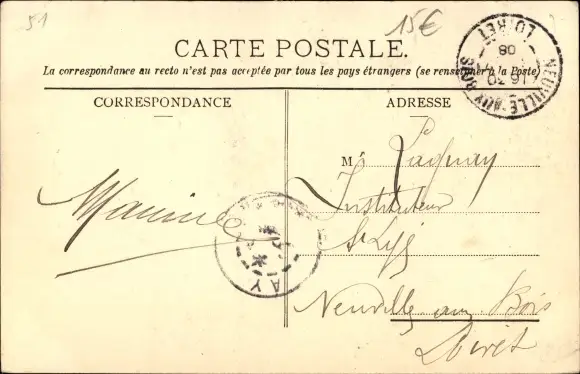 51
15€
CARTE POSTALE.
La correspondance au recto n'est pas acceptée par tous les pays étrangers (se renseigner à la Poste)
NEUVILLE-AUX-BOIS
LOIRET
08
CORRESPONDANCE
ADRESSE
M
Instituteur
St Lyé
Neuville aux Bois
Loiret
Maurice
AY